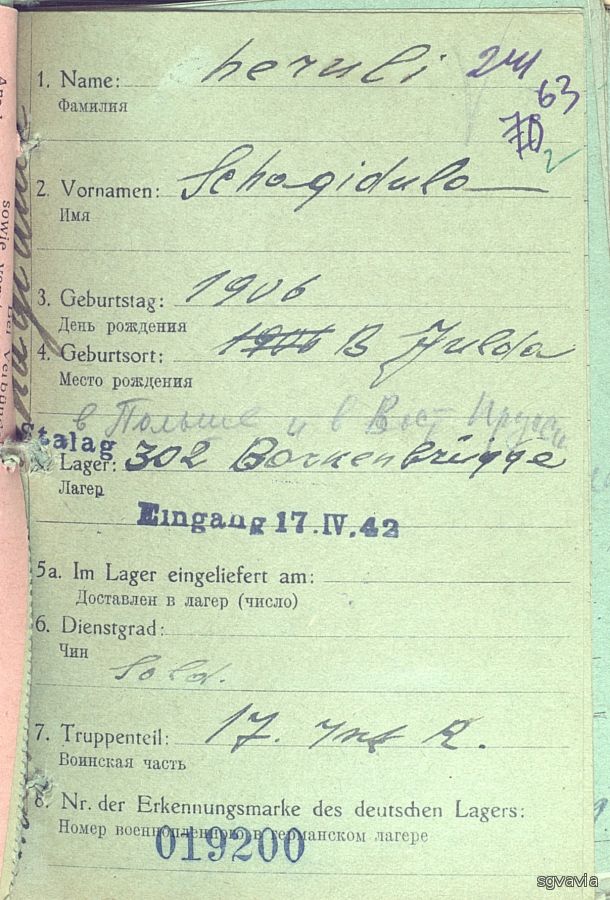 1. Name: heruli 241
Фамилия 63
2
2. Vornamen: Schagidula
Имя
3. Geburtstag: 1906
День рождения
4. Geburtsort: 1906 B Julda
Место рождения
в Польше и в Вост Прусси
talag
Lager: 302 Barkenbrügge
Лагер
Eingang 17.IV.42
5a. Im Lager eingeliefert am:
Доставлен в лагер (число)
6. Dienstgrad:
Чин Sold.
7. Truppenteil: 17. Inf R.
Воинская часть
8. Nr. der Erkennungsmarke des deutschen Lagers:
Номер военнопленного в германском лагере
019200
sgvavia